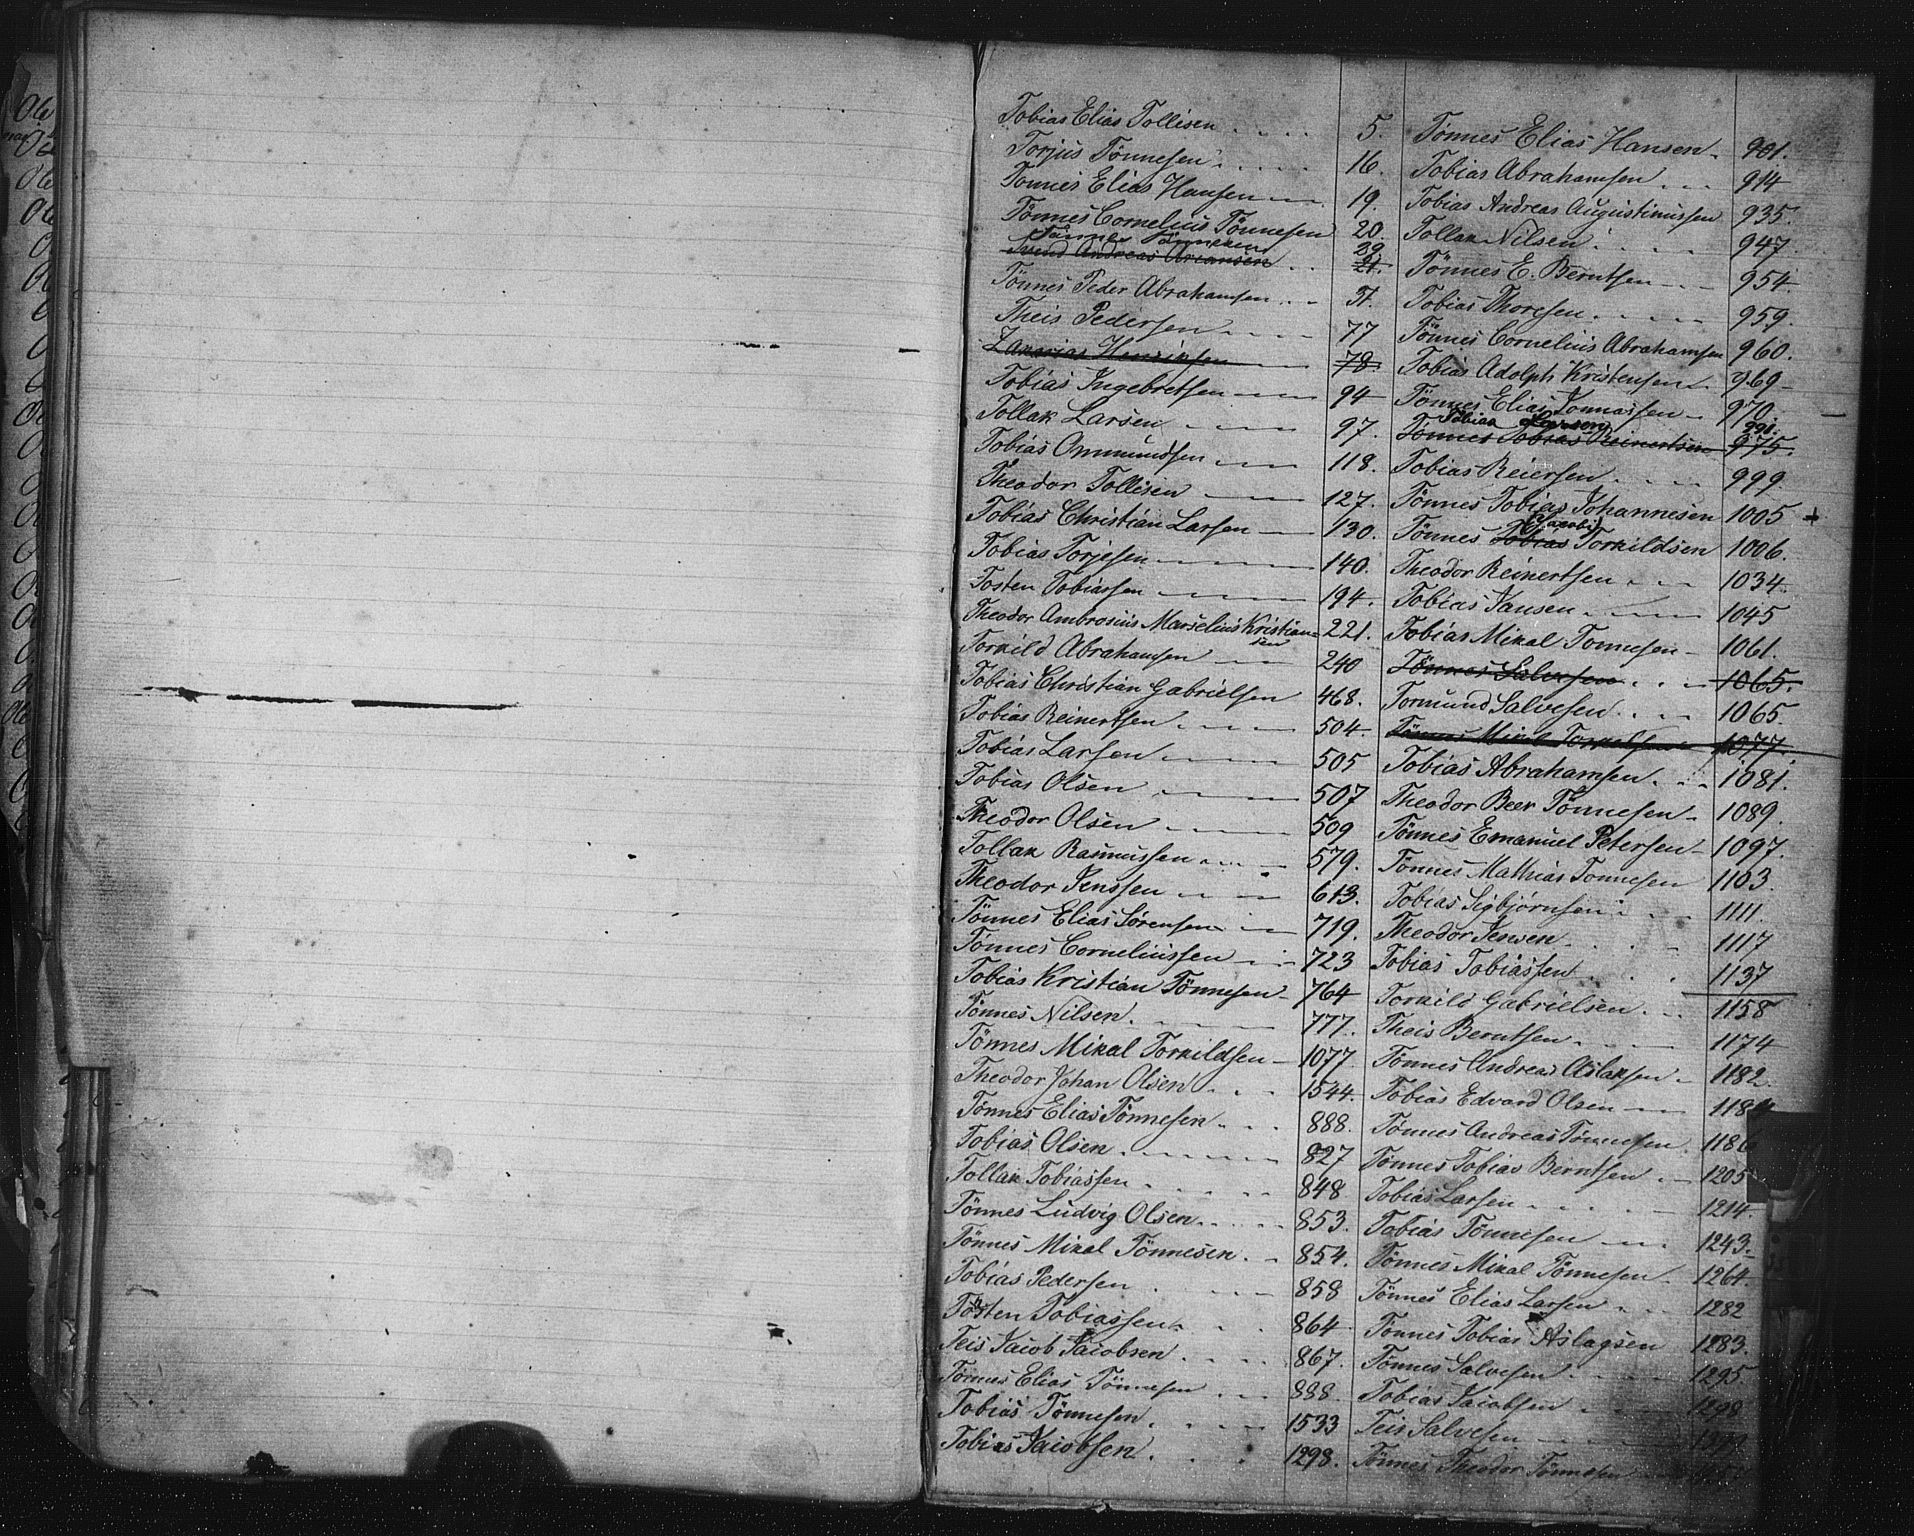 Tobias Elias Tollisen 5.
Torjus Tönnesen 16.
Tönnes Elias Hansen 19.
Tönnes Cornelius Tönnesen 20.
Tönnes Tönnesen 29
Andreas 21.
Tönnes Peder Abrahamsen 51.
Theis Pedersen 77
Zakarias Henriksen 78.
Tobias Ingebretsen 94
Tollak Larsen 97.
Tobias Ommundsen 118.
Theodor Tollisen 127.
Tobias Christian Larsen 130.
Tobias Torjesen 140.
Tosten Tobiassen 194.
Theodor Ambrosius Marselius Kristian= 221.
sen
Torkild Abrahamsen 240
Tobias Christian Gabrielsen 468.
Tobias Reinertsen 504.
Tobias Larsen 505
Tobias Olsen 507
Theodor Olsen 509
Tollak Rasmussen 579.
Theodor Jenssen 613.
Tönnes Elias Sörensen 719.
Tönnes Corneliussen 723
Tobias Kristian Tönnesen 764
Tönnes Nilsen 777.
Tönnes Mikal Torkildsen 1077.
Theodor Johan Olsen 1544.
Tönnes Elias Tönnesen 888.
Tobias Olsen 827
Tollak Tobiassen 848
Tönnes Ludvig Olsen 853.
Tönnes Mikal Tönnesen 854.
Tobias Pedersen 858
Tosten Tobiassen 864
Teis Jacob Jacobsen 867.
Tönnes Elias Tönnesen 888.
Tobias Tönnesen 1533
Tobias Jacobsen 1298.
Tönnes Elias Hansen 901.
Tobias Abrahamsen 914
Tobias Andreas Augustinussen 935.
Tollak Nilsen 947
Tönnes E. Berntsen 954.
Tobias Thoresen 959.
Tönnes Cornelius Abrahamsen 960.
Tobias Adolph Kristensen 969
Tönnes Elias Jonnassen 970.
Tobias Larsen 991.
Tönnes Tobias Reinertsen 975.
Tobias Reiersen 999.
Tönnes Tobias Johannesen 1005 +
(Jacob)
Tönnes Tobias Torkildsen 1006.
Theodor Reinertsen 1034.
Tobias Jansen 1045
Tobias Mikal Tönnesen 1061.
Tönnes Salvesen 1065.
Tormund Salvesen 1065.
Tönnes Mikal Torkelsen 1077.
Tobias Abrahamsen 1081.
Theodor Beer Tönnesen 1089.
Tönnes Emanuel Petersen 1097.
Tönnes Mathias Tönnesen 1103.
Tobias Sigbjörnsen 1111.
Theodor Jensen 1117
Tobias Tobiassen 1137
Torkild Gabrielsen 1158
Theis Berntsen 1174
Tönnes Andreas Aslaksen 1182.
Tobias Edvard Olsen
Tönnes Andreas Tönnesen 1186
Tönnes Tobias Berntsen 1205
Tobias Larsen 1214.
Tobias Tönnesen 1243.
Tönnes Mikal Tönnesen 1264.
Tönnes Elias Larsen 1282
Tönnes Tobias Aslagsen 1283.
Tönnes Salvesen 1295.
Tobias Jacobsen 1298
Teis Salvesen
Tönnes Theodor Tönnesen